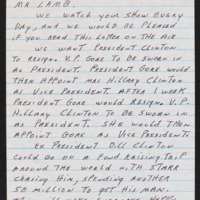 MR LAMB.
WE WATCH YOUR SHOW EVERY
DAY, AND WE WOULD BE PLEASED
IF YOU READ THIS LETTER ON THE AIR
WE WANT PRESIDENT CLINTON
TO RESIGN. V.P. GORE TO BE SWORN IN
AS PRESIDENT. PRESIDENT GORE WOULD
THEN APPOINT MRS HILLARY CLINTON
AS VICE PRESIDENT. AFTER 1 WEEK
PRESIDENT GORE WOULD RESIGN. V.P.
HILLARY CLINTON TO BE SWORN IN
AS PRESIDENT. SHE WOULD THEN
APPOINT GORE AS VICE PRESIDENT.
EX PRESIDENT BILL CLINTON
COULD GO ON A FUND RAISING TRIP
AROUND THE WORLD WITH STARR
CHASING HIM, SPENDING ANOTHER
50 MILLION TO GET HIS MAN.